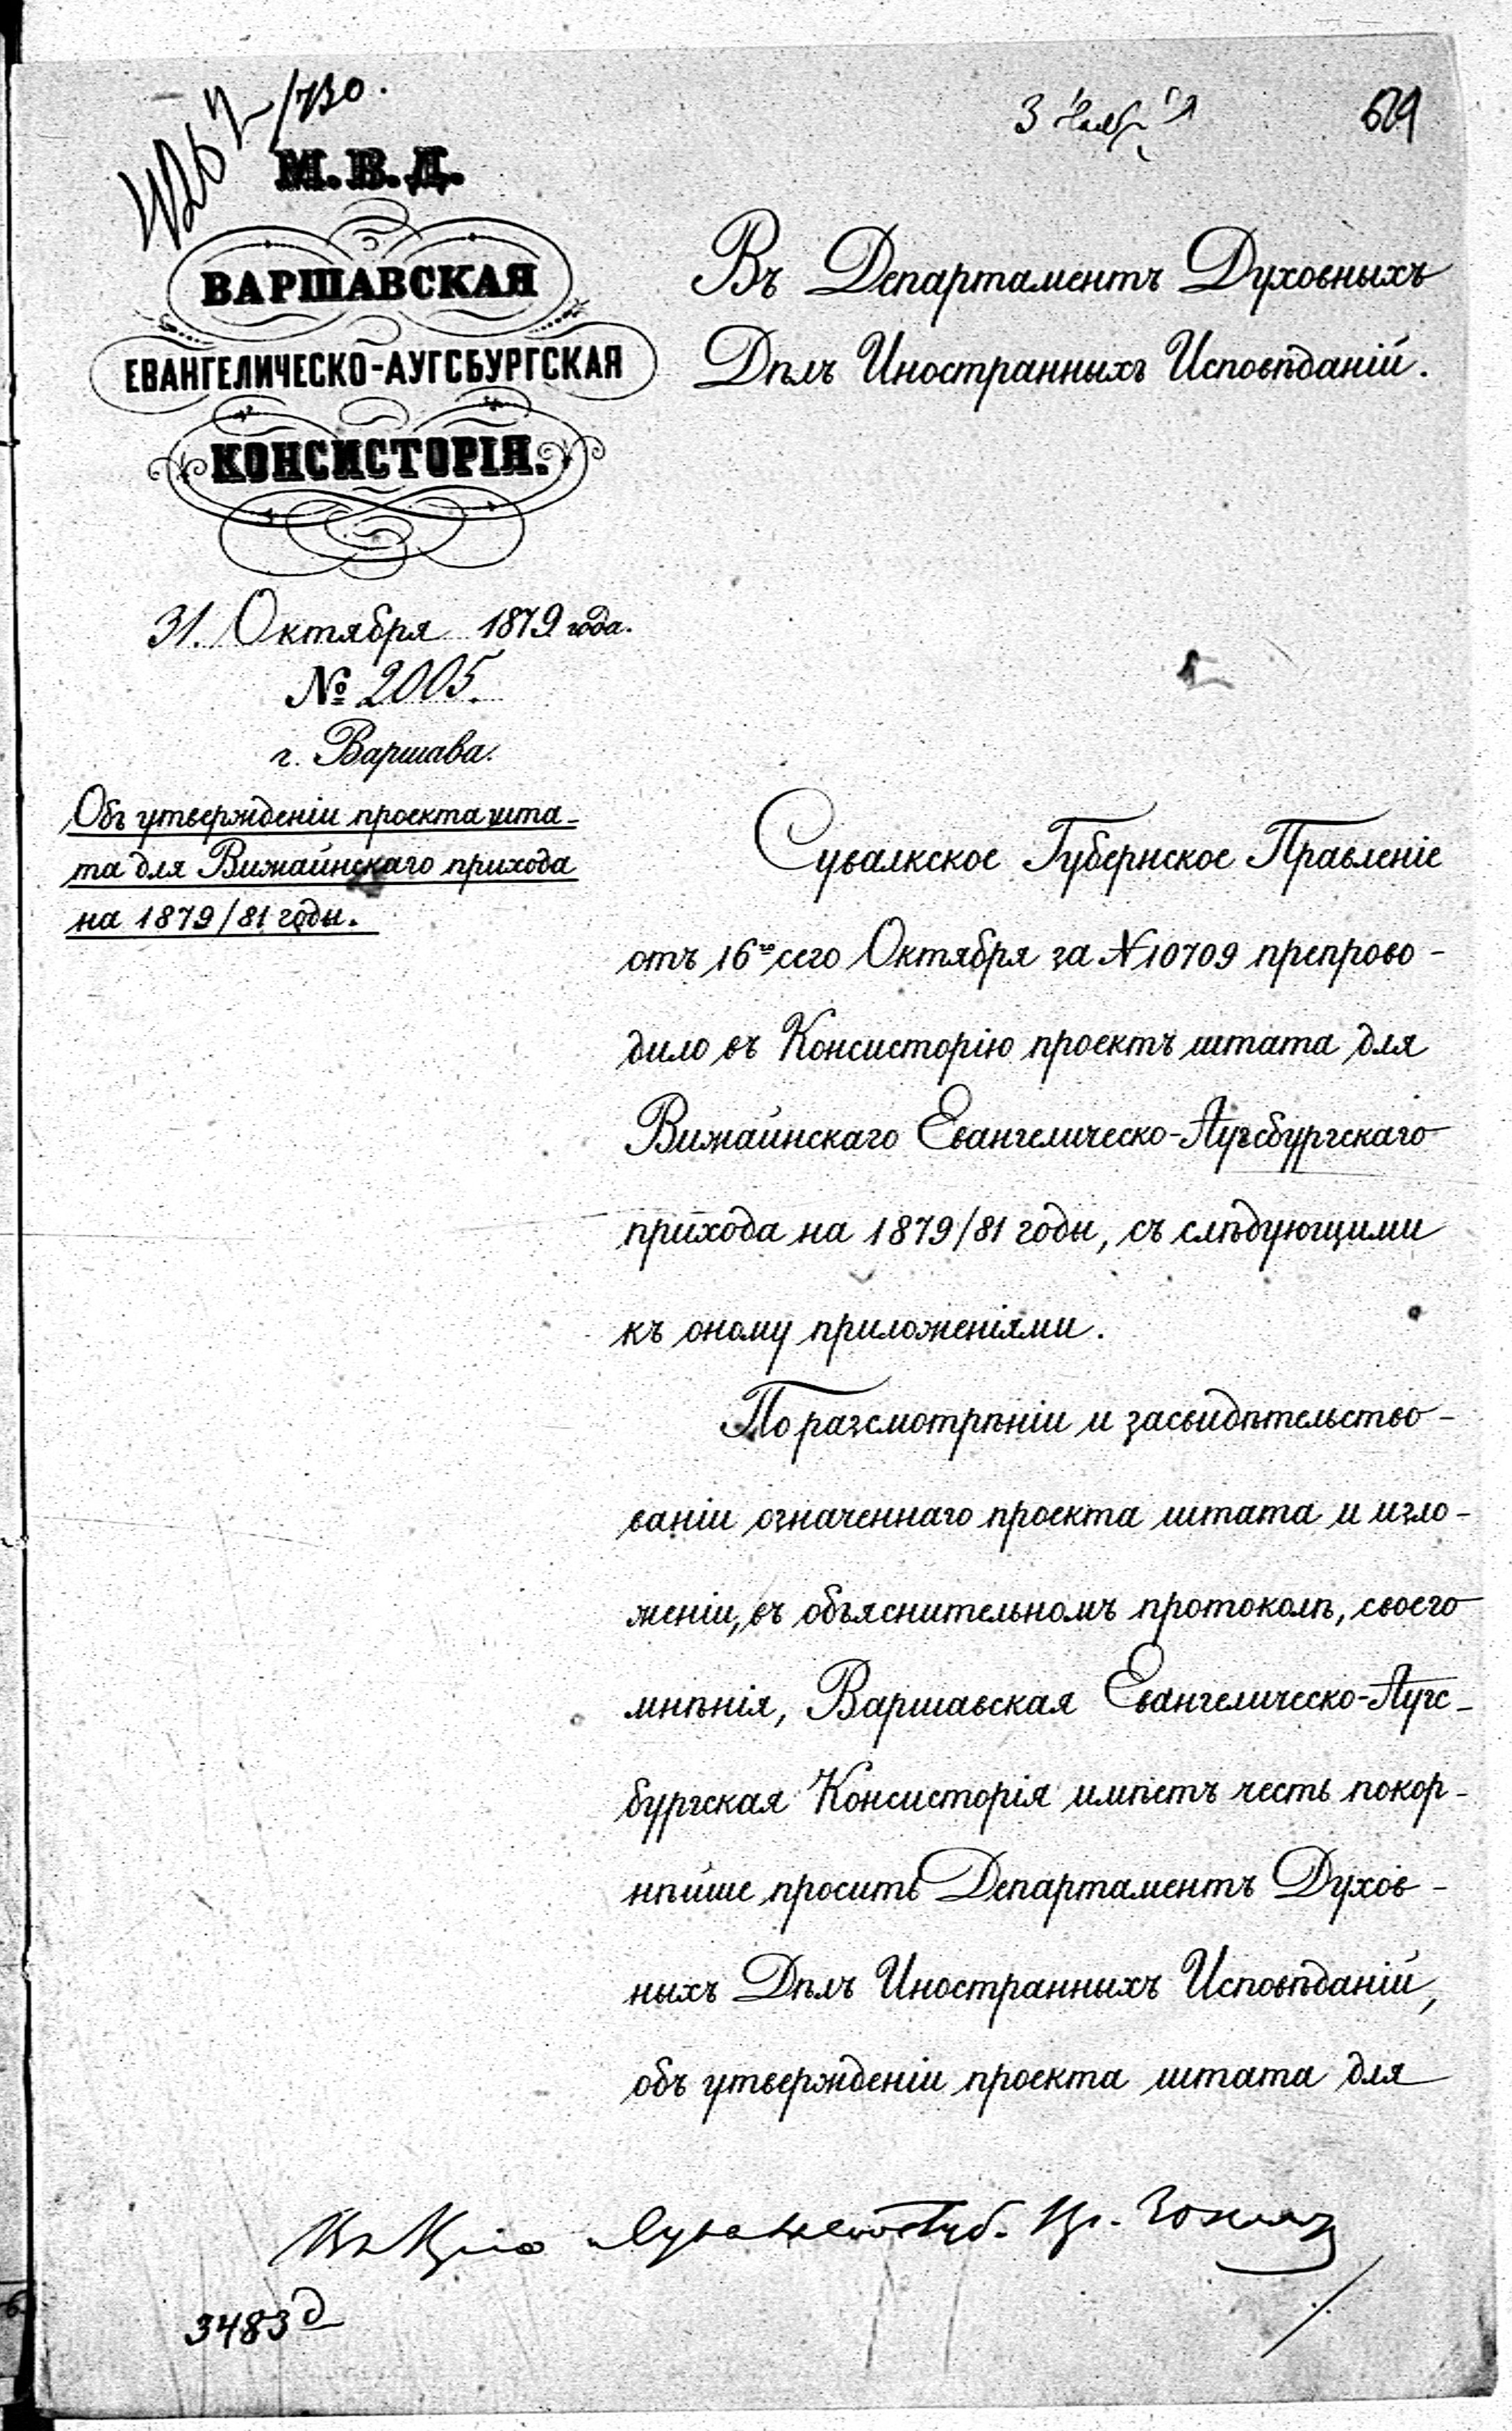 М.В.Д.
ВАРШАВСКАЯ
ЕВАНГЕЛИЧЕСКО-АУГСБУРГСКАЯ
КОНСИСТОРІЯ.
31. Октября 1879 года.
№ 2005.
г. Варшава.
Объ утвержденіи проекта шта-
та для Вижайнскаго прихода
на 1879/81 годы.
3 Ноябр
Въ Департаментъ Духовныхъ
Дѣлъ Иностранныхъ Исповѣданій.
Сувалкское Губернское Правленіе
отъ 16го сего Октября за № 10709 препрово-
дило въ Консисторію проектъ штата для
Вижайнскаго Евангелическо-Аугсбургскаго
прихода на 1879/81 годы, съ слѣдующими
къ оному приложеніями.
По разсмотрѣніи и засвидѣтельство-
ваніи означеннаго проекта штата и изло-
женіи, въ объяснительномъ протоколѣ, своего
мнѣнія, Варшавская Евангелическо-Аугс-
бургская Консисторія имѣетъ честь покор-
нѣйше просить Департаментъ Духов-
ныхъ Дѣлъ Иностранныхъ Исповѣданій,
объ утвержденіи проекта штата для
3483